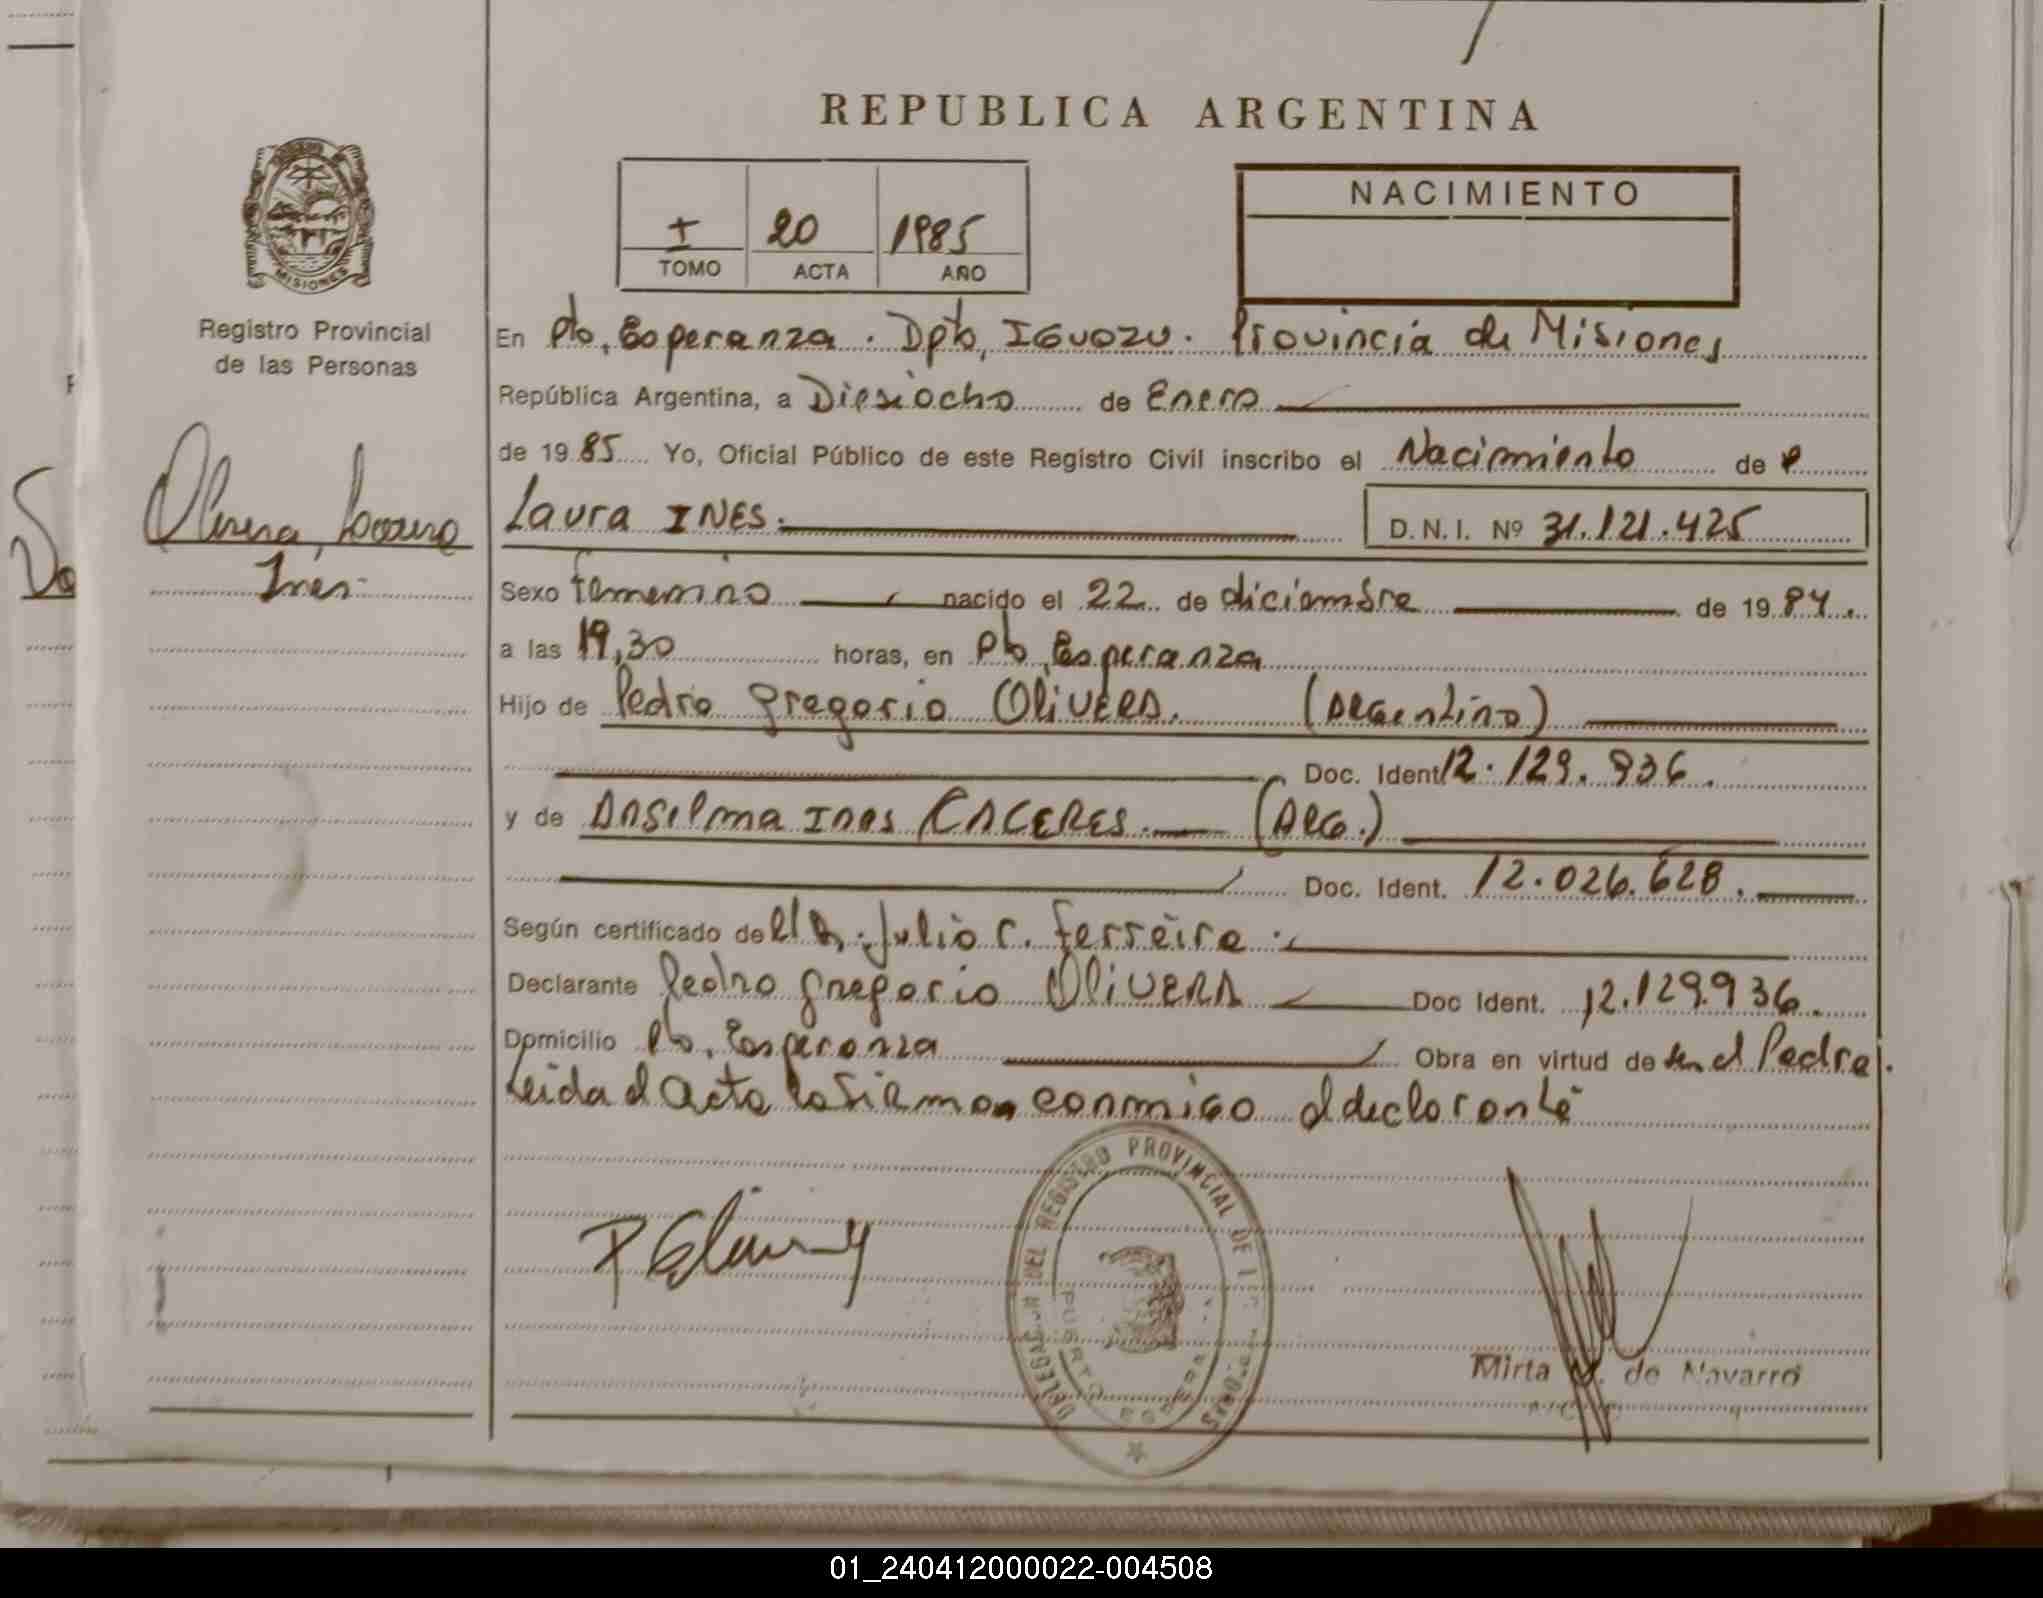 REPUBLICA ARGENTINA
MISIONES
Registro Provincial
de las Personas
I 20 1985
TOMO ACTA AÑO
NACIMIENTO
En Pto. Esperanza. Dpto, IGUAZU. Provincia de Misiones
República Argentina, a Diesiocho de Enero
de 1985 Yo, Oficial Público de este Registro Civil inscribo el Nacimiento de
Olivera, Laura
Ines
Laura INES. D.N.I. Nº 31.121.425
Sexo femenino nacido el 22 de diciembre de 1984.
a las 19,30 horas, en Pto, Esperanza
Hijo de Pedro Gregorio OLIVERA. (Argentino)
Doc. Ident 12.129.936.
y de Anselma Ines CACERES. (ARG.)
Doc. Ident. 12.026.628.
Según certificado de el Dr. Julio C. Ferreira.
Declarante Pedro Gregorio OLIVERA Doc Ident. 12.129.936.
Domicilio Pto. Esperanza Obra en virtud de ser el Padre.
Leida el Acta la firman conmigo el declarante
DEL REGISTRO PROVINCIAL DE
PUERTO
Mirta de Navarro
01_240412000022-004508